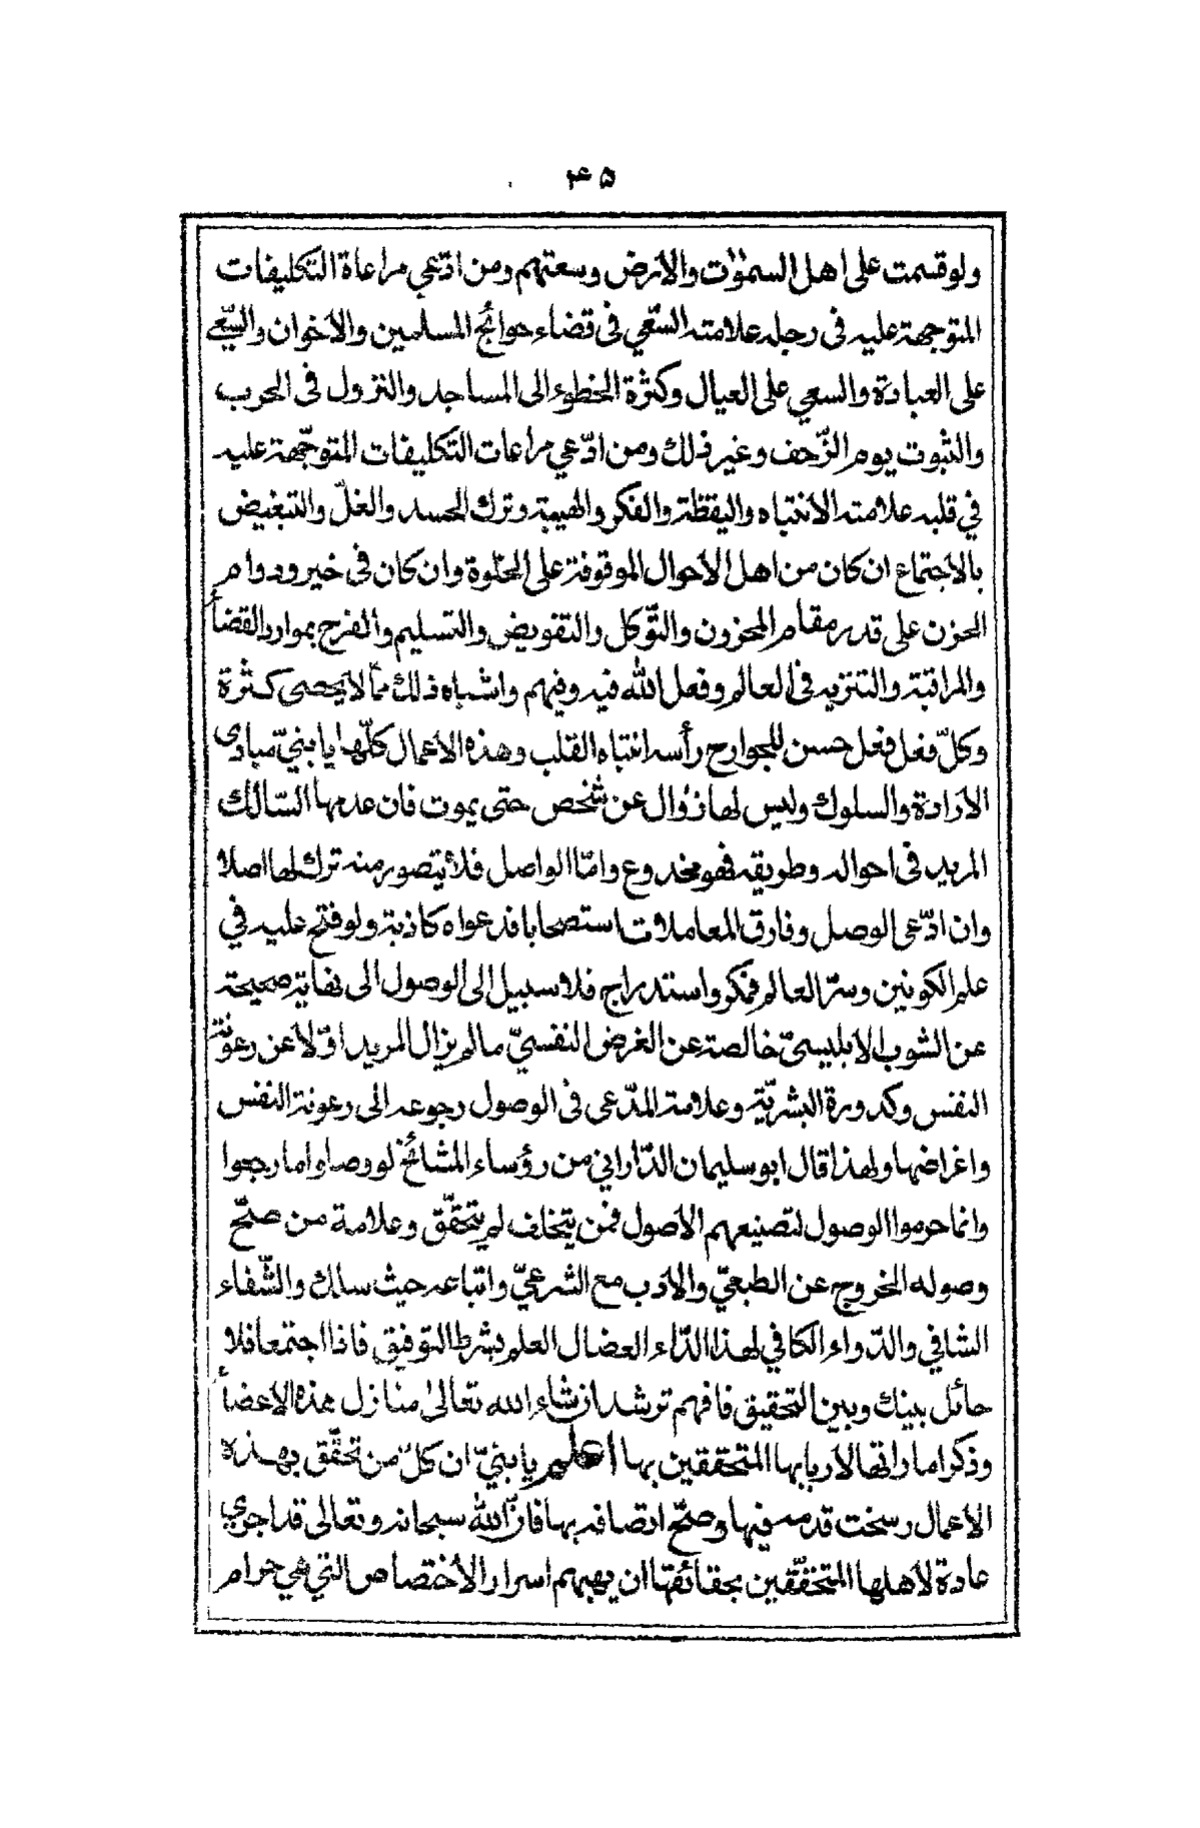 ۴۵
ولو قسمت على اهل السمٰوٰت والارض وسعتهم ومن ادّعى مراعاة التكليفات
المتوجهة عليه فى رجله علامته السّعي فى قضاء حوائج المسلمين والاخوان والسّعي
على العبادة والسعي على العيال وكثرة الخطوء الى المساجد والنزول فى الحرب
والثبوت يوم الزّحف وغير ذلك ومن ادّعي مراعات التكليفات المتوجّهة عليه
في قلبه علامته الانتباه واليقظة والفكر والهيبة وترك الحسد والغلّ والتبغيض
بالاجتماع ان كان من اهل الاحوال الموقوفة على الخلوة وان كان فى خير ودوام
الحزن على قدر مقام المحزون والتّوكل والتفويض والتسليم والفرح بموارد القضأ
والمراقبة والتنزيه فى العالم وفعل الله فيه وفيهم واشباه ذلك ممّا لا يحصى كثرة
وكلّ فعل فعل حسن للجوارح رأسه انتباه القلب وهذه الاعمال كلّها يا بنيّ مبادى
الارادة والسلوك وليس لها زوال عن شخص حتى يموت فان عدمها السّالك
المريد فى احواله وطريقه فهو مخدوع وامّا الواصل فلا يتصور منه ترك لها اصلا
وان ادّعى الوصل وفارق المعاملات استصحابا فدعواه كاذبة ولو فتح عليه في
علم الكونين وسرّ العالم فمكر واستدراج فلا سبيل الى الوصول الى نهاية صحيحة
عن الشوب الابليسيّ خالصة عن الغرض النفسيّ ما لم يزال المريد اوّلا عن رعونة
النفس وكدورة البشريّة وعلامة المدّعى فى الوصول رجوعه الى رعونة النفس
واغراضها ولهذا قال ابو سليمان الدّاراني من رؤساء المشائخ لو وصلوا ما رجعوا
وانما حرموا الوصول لتضيعهم الاصول فمن يتخلف لم يتحقّق وعلامة من صحّ
وصوله الخروج عن الطبعيّ والادب مع الشرعيّ واتباعه حيث سلك والشّفاء
الشافي والدّواء الكافي لهذا الدّاء العضال العلم بشرط التوفيق فاذا اجتمعا فلا
حائل بينك وبين التحقيق فافهم ترشد ان شاء الله تعالىٰ منازل هذه الاعضأ
وذكر اماراتها لاربابها المتحققين بها اعلم يا بنيّ ان كل من تحقّق بهذه
الاعمال رسخت قدمه فيها وصحّ اتصافه بها فانّ الله سبحانه وتعالى قد اجرى
عادة لاهلها المتحقّقين بحقائقها ان يهبهم اسرار الاختصاص التي هي حرام